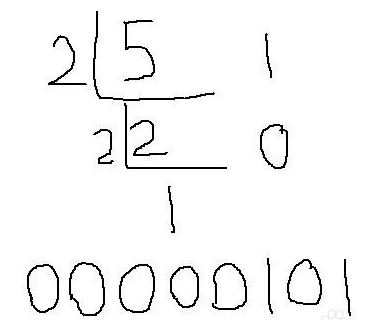 2 5 1
2 2 0
1
00000101